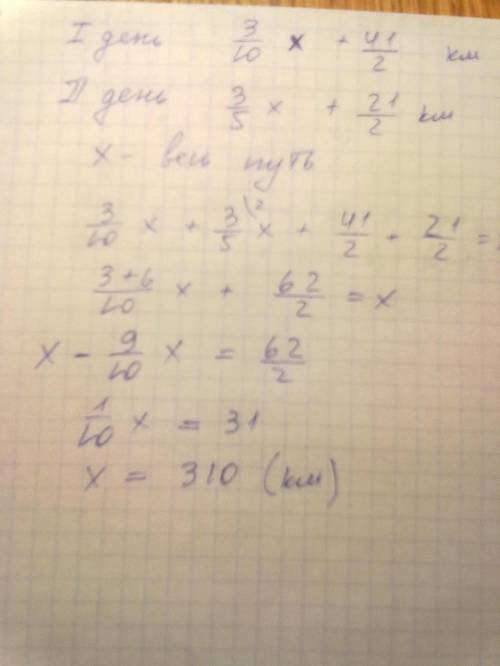 I день 3/10 x + 41/2 км
II день 3/5 x + 21/2 км
x - весь путь
3/10 x + 3/5 \2 x + 41/2 + 21/2 =
3+6/10 x + 62/2 = x
x - 9/10 x = 62/2
1/10 x = 31
x = 310 (км)